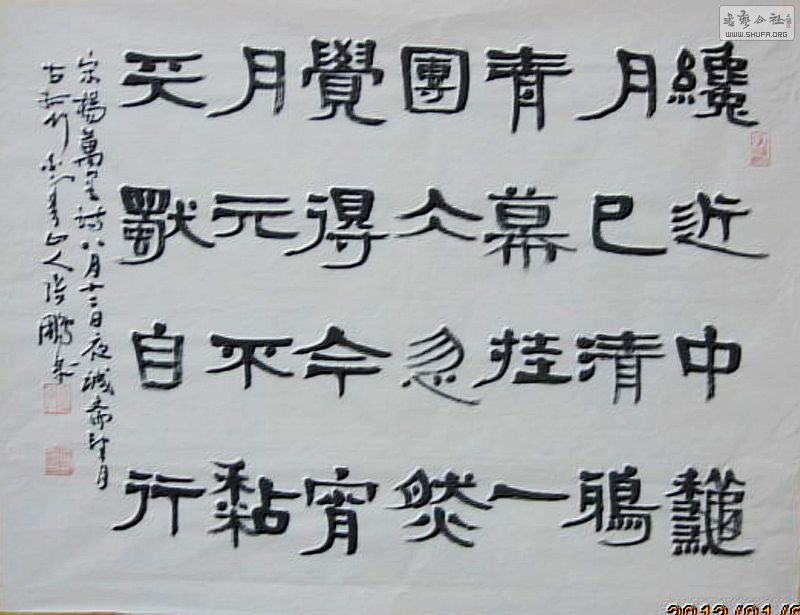 纔近中龝
月已清鴉
青幕挂一
團仌忽然
覺得今宵
月元不黏
天獨自行
宋楊萬里詩八月十二日夜誠齋望月
山人張鵬
書藝公社
WWW.SHUFA.ORG
2012/01/0